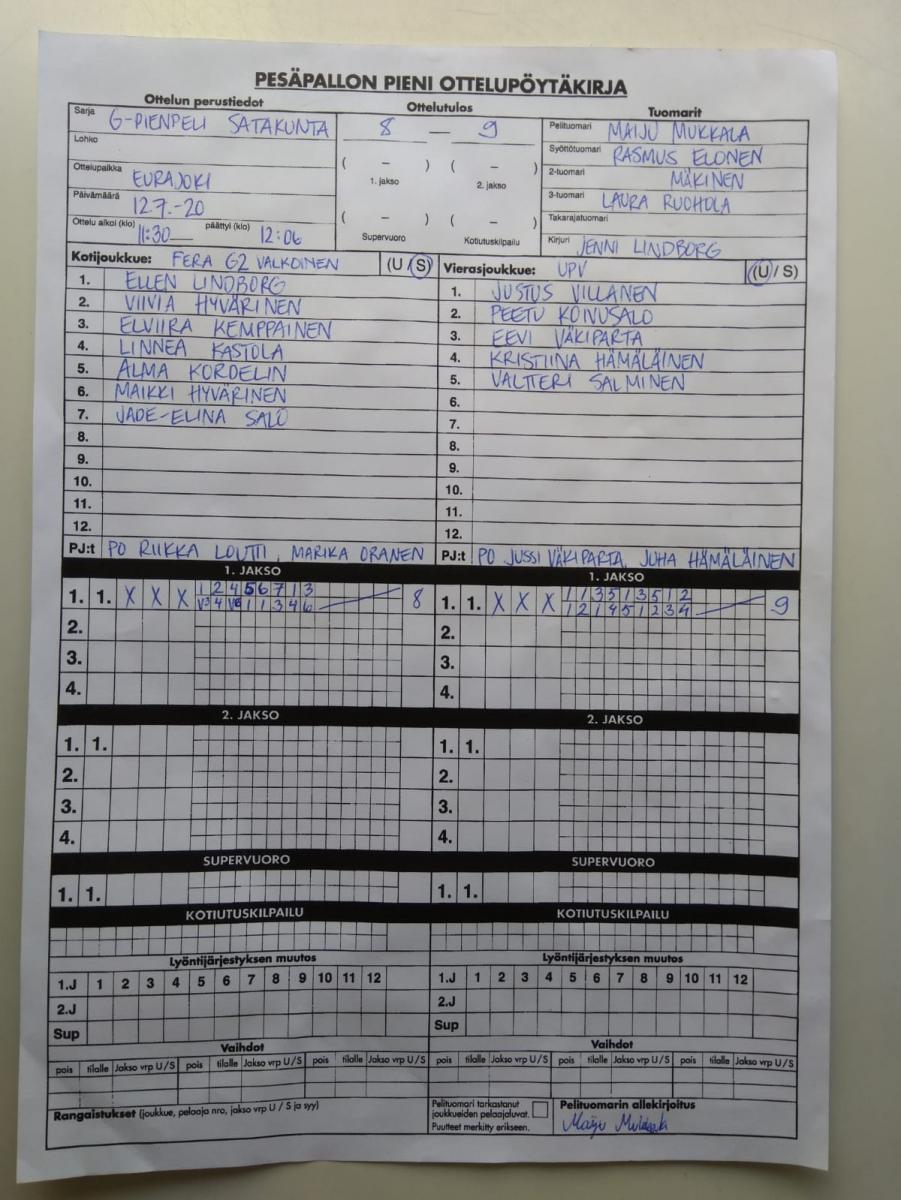 PESÄPALLON PIENI OTTELUPÖYTÄKIRJA
Ottelun perustiedot
Sarja G-PIENPELI SATAKUNTA
Lohko
Ottelupaikka EURAJOKI
Päivämäärä 12.7.-20
Ottelu alkoi (klo) 11:30 päättyi (klo) 12:06
Ottelutulos
8 — 9
( – ) ( – )
1. jakso 2. jakso
( – ) ( – )
Supervuoro Kotiutuskilpailu
Tuomarit
Pelituomari MAIJU MUKKALA
Syöttötuomari RASMUS ELONEN
2-tuomari MÄKINEN
3-tuomari LAURA RUOHOLA
Takarajatuomari
Kirjuri JENNI LINDBORG
Kotijoukkue: FERA G2 VALKOINEN (U / S)
1. ELLEN LINDBORG
2. VIIVIA HYVÄRINEN
3. ELVIIRA KEMPPAINEN
4. LINNEA KASTOLA
5. ALMA KORDELIN
6. MAIKKI HYVÄRINEN
7. JADE-ELINA SALO
8.
9.
10.
11.
12.
PJ:t PO RIIKKA LOUTTI, MARIKA ORANEN
Vierasjoukkue: UPV (U / S)
1. JUSTUS VILLANEN
2. PEETU KOIVUSALO
3. EEVI VÄKIPARTA
4. KRISTIINA HÄMÄLÄINEN
5. VALTTERI SALMINEN
6.
7.
8.
9.
10.
11.
12.
PJ:t PO JUSSI VÄKIPARTA, JUHA HÄMÄLÄINEN
1. JAKSO
1. 1. X X X 1 2 4 5 6 7 1 3 8
V3 4 V6 1 1 3 4 6
2.
3.
4.
1. JAKSO
1. 1. X X X 1 1 3 5 1 3 5 1 2 9
1 2 1 4 5 1 2 3 4
2.
3.
4.
2. JAKSO
1. 1.
2.
3.
4.
2. JAKSO
1. 1.
2.
3.
4.
SUPERVUORO
1. 1.
SUPERVUORO
1. 1.
KOTIUTUSKILPAILU
KOTIUTUSKILPAILU
Lyöntijärjestyksen muutos
1.J 1 2 3 4 5 6 7 8 9 10 11 12
2.J
Sup
Lyöntijärjestyksen muutos
1.J 1 2 3 4 5 6 7 8 9 10 11 12
2.J
Sup
Vaihdot
pois tilalle Jakso vrp U/S pois tilalle Jakso vrp U/S pois tilalle Jakso vrp U/S
Vaihdot
pois tilalle Jakso vrp U/S pois tilalle Jakso vrp U/S pois tilalle Jakso vrp U/S
Rangaistukset (joukkue, pelaaja nro, jakso vrp U / S ja syy)
Pelituomari tarkastanut
joukkueiden pelaajaluvat.
Puutteet merkitty erikseen.
Pelituomarin allekirjoitus
Maiju Mukkala